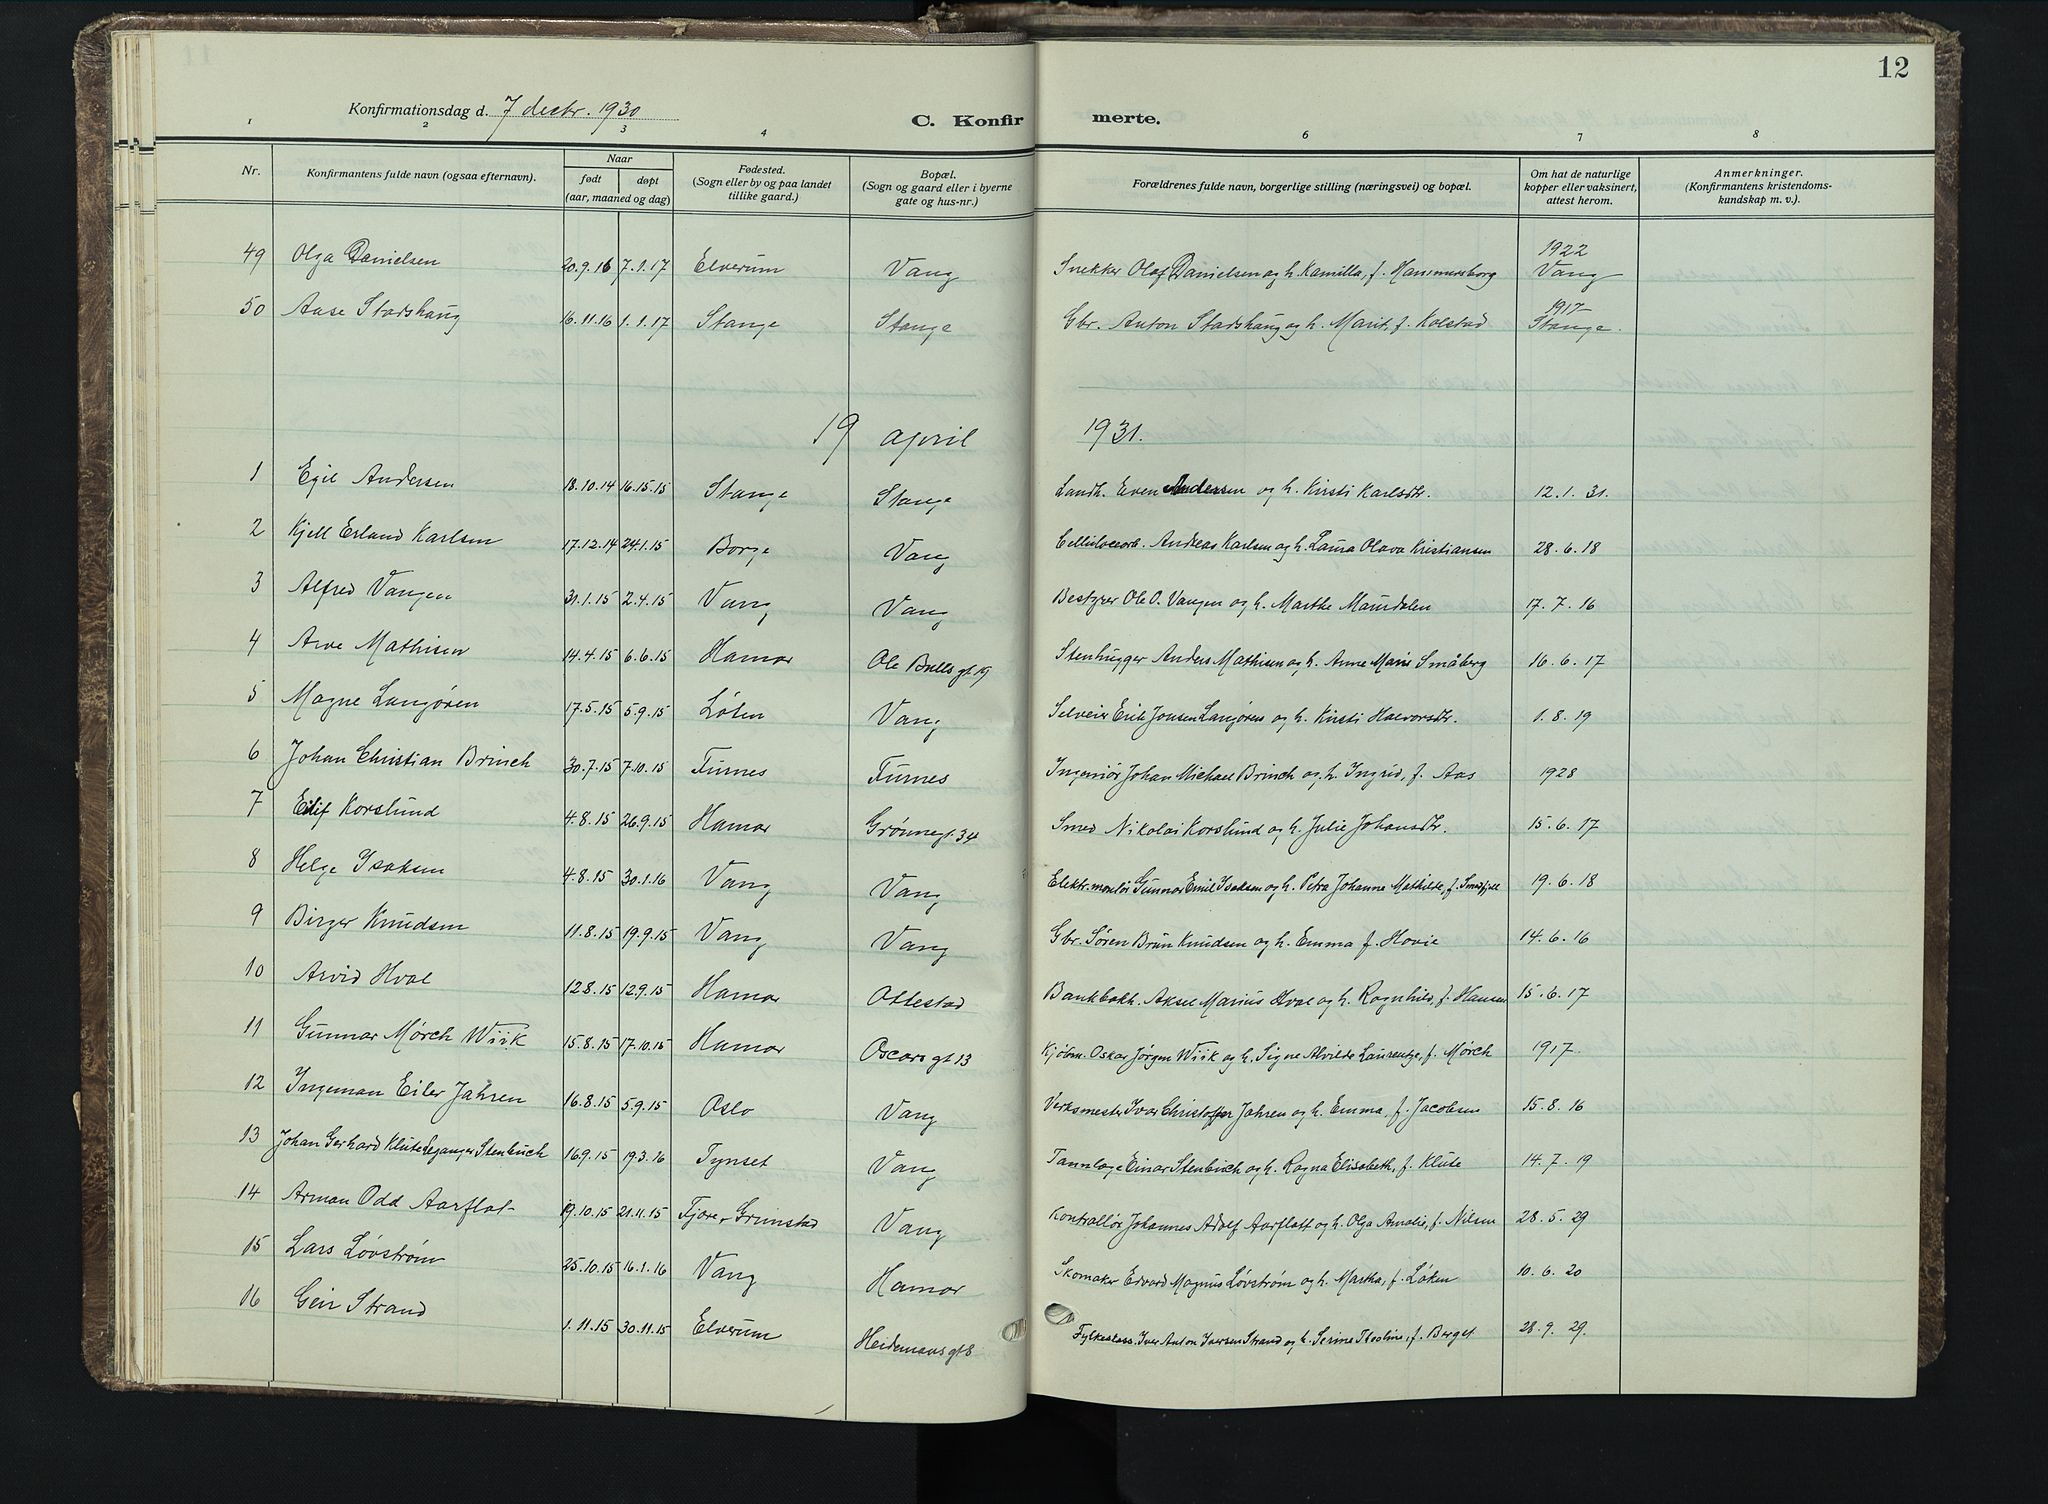 12
Konfirmationsdag d. 7 decbr. 1930
C. Konfirmerte.
1 2 3 4 6 7 8
Nr. Konfirmantens fulde navn (ogsaa efternavn). Naar født døpt (aar, maaned og dag) Fødested. (Sogn eller by og paa landet tillike gaard.) Bopæl. (Sogn og gaard eller i byerne gate og hus-nr.) Forældrenes fulde navn, borgerlige stilling (næringsvei) og bopæl. Om hat de naturlige kopper eller vaksinert, attest herom. Anmerkninger. (Konfirmantens kristendoms-kundskap m. v.).
49 Olga Danielsen 20.9.16 7.1.17 Elverum Vang Snekker Olaf Danielsen og h. Kamilla, f. Hammersborg 1922 Vang
50 Aase Stadshaug 16.11.16 1.1.17 Stange Stange Gbr. Anton Stadshaug og h. Marit, f. Kolstad 1917 Stange.
19 april 1931.
1 Egil Andersen 18.10.14 16.15.15 Stange Stange Landh. Even Andersen og h. Kirsti Karlsdtr. 12.1.31.
2 Kjell Erland Karlsen 17.12.14 24.1.15 Borge Vang Cellulosearb. Andreas Karlsen og h. Laura Olava Kristiansen 28.6.18
3 Alfred Vangen 31.1.15 2.4.15 Vang Vang Bestyrer Ole O. Vangen og h. Marthe 17.7.16
4 Arve Mathisen 14.4.15 6.6.15 Hamar Ole Bulls gt 19 Stenhugger Anders Mathisen og h. Anne Marie Småberg 16.6.17
5 Magne Langøren 17.5.15 5.9.15 Løten Vang Selveier Erik Jonsen Langøren og h. Kirsti Halvorsdtr. 1.8.19
6 Johan Christian Brinch 30.7.15 7.10.15 Furnes Furnes Ingeniør Johan Michael Brinch og h. Ingrid, f. Aas 1928
7 Eilif Korslund 4.8.15 26.9.15 Hamar Grønnegt. 34 Smed Nikolai Korslund og h. Julie Johansdtr. 15.6.17
8 Helge Isaksen 4.8.15 30.1.16 Vang Vang Elektr.montør Gunnar Emil Isaksen og h. Petra Johanne Mathilde, f. Smedfjell 19.6.18
9 Birger Knudsen 11.8.15 19.9.15 Vang Vang Gbr. Søren Brun Knudsen og h. Emma f. Hovie 14.6.16
10 Arvid Hval 12.8.15 12.9.15 Hamar Ottestad Bankbokh. Aksel Marius Hval og h. Ragnhild, f. Hansen 15.6.17
11 Gunnar Mørch Wiik 15.8.15 17.10.15 Hamar Oscars gt 13 Kjøbm. Oskar Jørgen Wiik og h. Signe Alvilde Laurentze, f. Mørch 1917.
12 Ingeman Eiler Jahren 16.8.15 5.9.15 Oslo Vang Verksmester Ivar Christoffer Jahren og h. Emma, f. Jacobsen 15.8.16
13 Johan Gerhard Klute Stenbuch 16.9.15 19.3.16 Tynset Vang Tannlæge Einar Stenbuch og h. Ragna Elisabeth, f. Klute 14.7.19
14 Arman Odd Aarflot 19.10.15 21.11.15 Fjære, Grimstad Vang Kontrollør Johannes Adolf Aarflatt og h. Olga Amalie, f. Nilsen 28.5.29
15 Lars Løvstrøm 25.10.15 16.1.16 Vang Hamar Skomaker Edvard Magnus Løvstrøm og h. Martha, f. Løken 10.6.20
16 Geir Strand 1.11.15 30.11.15 Elverum Heidemans gt 8 Fylkeskass. Iver Anton Iversen Strand og h. Serine Theoline, f. Berget 28.9.29.